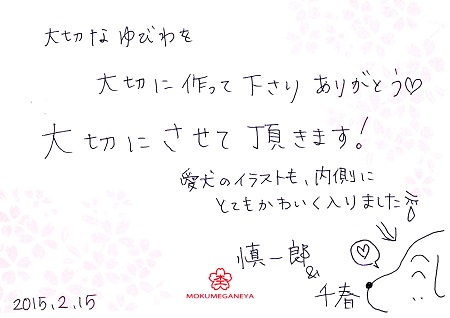 大切なゆびわを
大切に作って下さりありがとう♡
大切にさせて頂きます!
愛犬のイラストも、内側に
とてもかわいく入りました
慎一郎
&
千春
MOKUMEGANEYA
2015.2.15